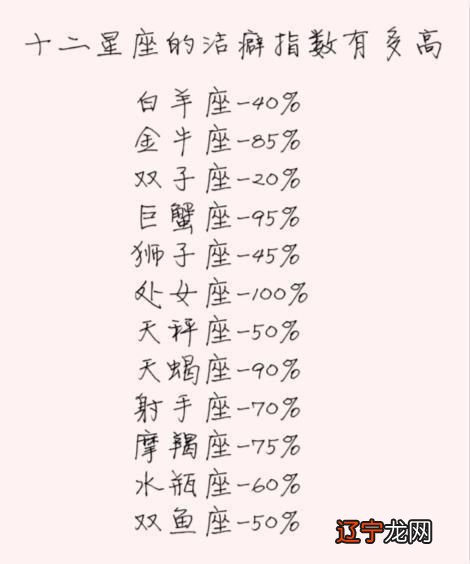 十二星座的洁癖指数有多高
白羊座-40%
金牛座-85%
双子座-20%
巨蟹座-95%
狮子座-45%
处女座-100%
天秤座-50%
天蝎座-90%
射手座-70%
摩羯座-75%
水瓶座-60%
双鱼座-50%
辽宁龙网